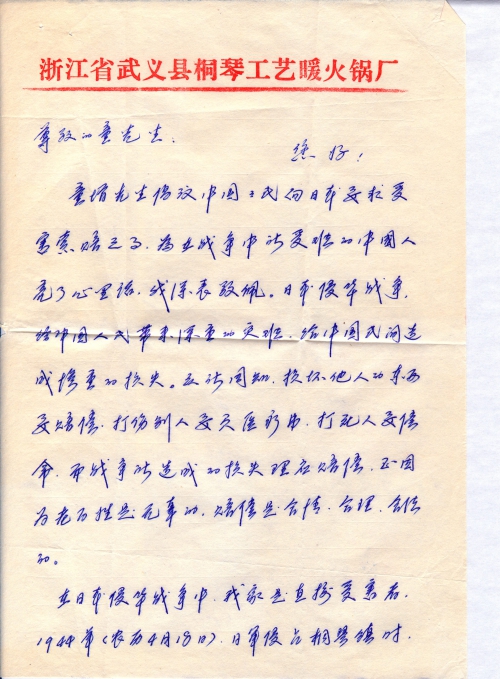 浙江省武义县桐琴工艺暖火锅厂
尊敬的童先生.
您好!
童增先生倡议中国公民向日本要求受
害索赔之事.为在战争中所受难的中国人
亮了心里话,我深表敬佩。日本侵华战争,
给中国人民带来深重的灾难.给中国民间造
成惨重的损失。众所周知,损坏他人的东西
要赔偿.打伤别人要负医药费.打死人要偿
命.而战争所造成的损失理应赔偿,正因
为老百姓是无辜的.赔偿是合情.合理.合法
的。
在日本侵华战争中.我家是直接受害者.
1944年(农历4月18日).日军侵占桐琴镇时.